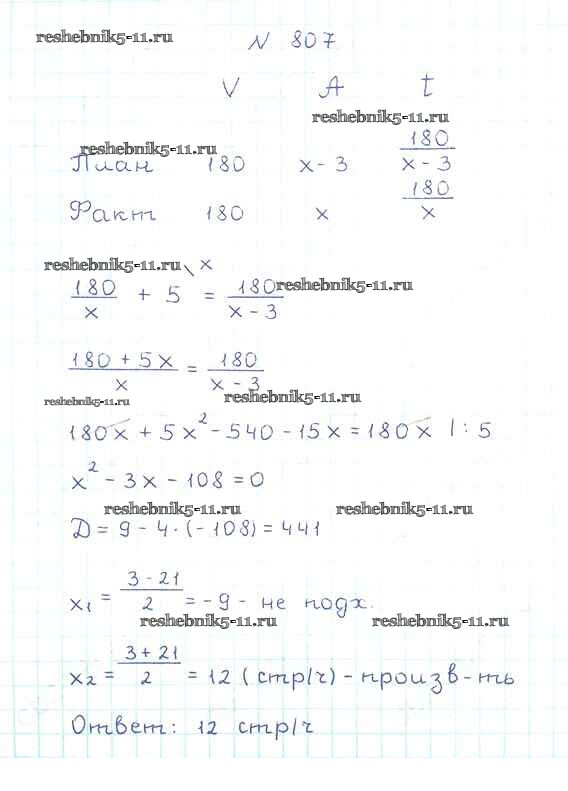 reshebnik5-11.ru
N 807
V A t
reshebnik5-11.ru
reshebnik5-11.ru
План 180 x - 3 180/(x - 3)
Факт 180 x 180/x
reshebnik5-11.ru \ x
180/x + 5 = 180/(x - 3) reshebnik5-11.ru
(180 + 5x)/x = 180/(x - 3)
reshebnik5-11.ru reshebnik5-11.ru
180x + 5x² - 540 - 15x = 180x | : 5
x² - 3x - 108 = 0
reshebnik5-11.ru reshebnik5-11.ru
D = 9 - 4·(-108) = 441
x₁ = (3 - 21)/2 = -9 - не подх.
reshebnik5-11.ru reshebnik5-11.ru
x₂ = (3 + 21)/2 = 12 (стр/ч) - произв-ть
Ответ: 12 стр/ч